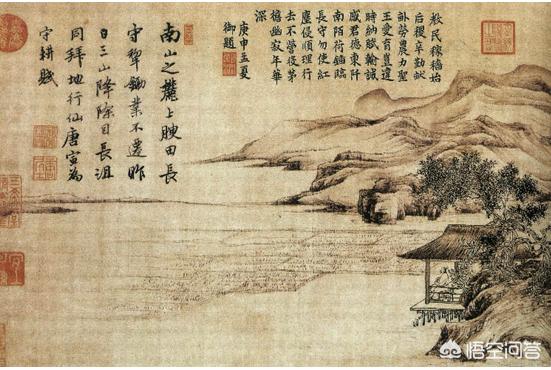 教民稼穡始
后稷辛勤獻
勞農力聖
王愛育豈違
時納賦輸誠
感君德東阡
南陌荷鋤臨
長守勿使紅
塵侵順理行
去不營役茅
檐幽寂年華
深
庚申孟夏
御題
南山之麓上腴田長
守犁鋤業不遷昨
日三山降除目長沮
同拜地行仙唐寅為
守耕賦
悟空问答